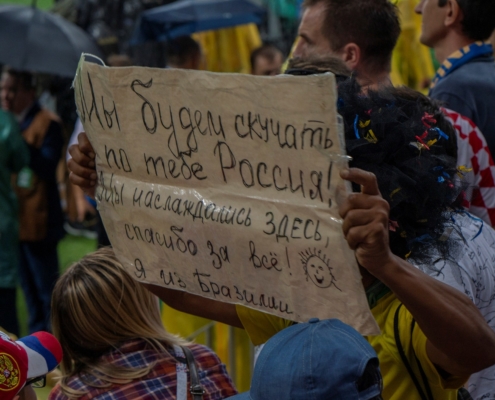 Мы будем скучать
по тебе Россия!
Мы наслаждались ЗДЕСЬ,
спасибо за всё!
Я из Бразилии